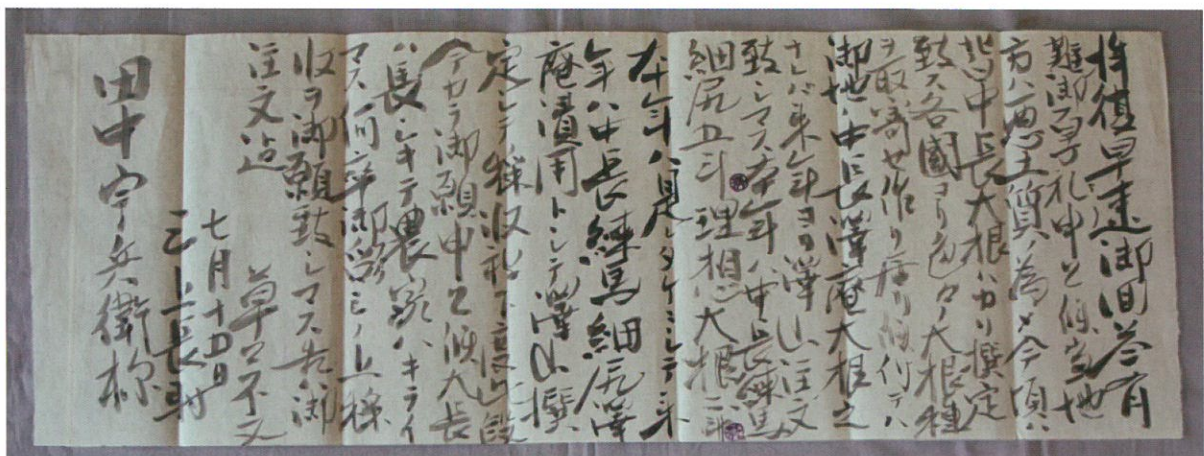 拝復早速御回答有
難御写札申上候当地
方ハ悪土質ノ為メ今頃ハ
皆中長大根バカリ撰定
致ス各國ヨリ色々大根種
ヲ取寄セ作リ居リ候付テハ
御地ノ中長澤庵大根之
ナレバ来年ヨリ澤山注文
致シマス本年ハ中長練馬
細尻五斗理想大根二斗
本年ハ是レタケニシテ来
年ハ中長練馬細尻澤
庵漬用トシテ澤山撰
定シテ採収
今カラ御願申上候大長
ハ長シキテ農家ハキライ
マス何卒御承ミノ上採
収ヲ御願致シマス先ハ御
注文迄 草々不文
七月十五日
三上長
田中宇兵衛様